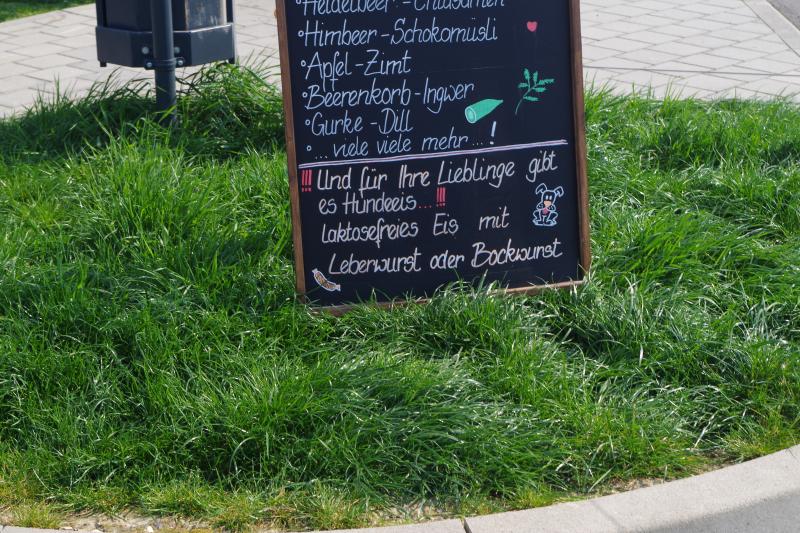 • Heidelbeer-Chiasamen
• Himbeer-Schokomüsli
• Apfel-Zimt
• Beerenkorb-Ingwer
• Gurke-Dill
• ... viele viele mehr ... !
!!! Und für Ihre Lieblinge gibt
es Hundeeis... !!!
laktosefreies Eis mit
Leberwurst oder Bockwurst